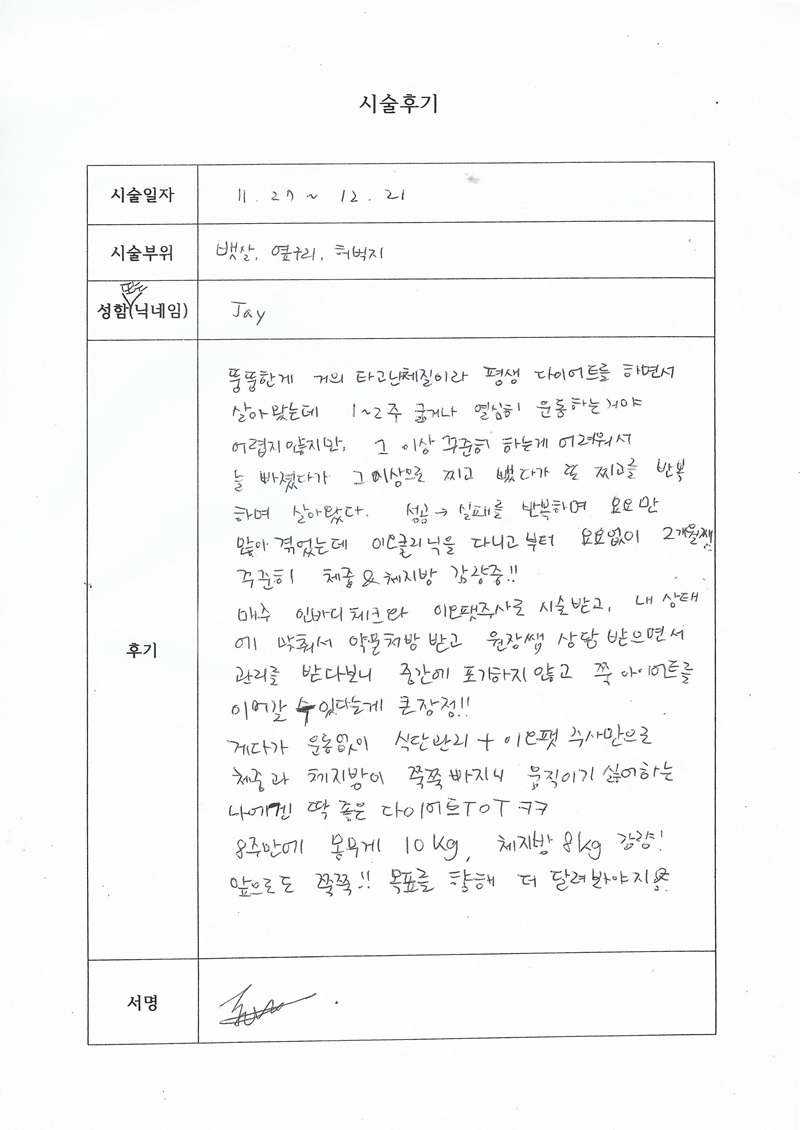 시술후기
시술일자 11. 27 ~ 12. 21
시술부위 뱃살, 옆구리, 허벅지
또는
성함(닉네임) Jay
후기
뚱뚱한게 거의 타고난체질이라 평생 다이어트를 하면서
살아왔는데 1~2주 굶거나 열심히 운동하는거야
어렵지않지만, 그 이상 꾸준히 하는게 어려워서
늘 빠졌다가 그 이상으로 찌고 뺐다가 또 찌고를 반복
하며 살아왔다. 성공→실패를 반복하며 요요만
많아 겪었는데 클리닉을 다니고부터 요요없이 2개월째
꾸준히 체중&체지방 감량중!!
매주 인바디체크와 시술받고, 내 상태
에 맞춰서 약물처방 받고 원장쌤 상담 받으면서
관리를 받다보니 중간에 포기하지 않고 쭉 다이어트를
이어갈 수 있다는게 큰장점!!
게다가 운동없이 식단관리 + 주사만으로
체중과 체지방이 쭉쭉 빠지니 움직이기 싫어하는
나에겐 딱 좋은 다이어트ToT ㅋㅋ
8주만에 몸무게 10kg, 체지방 8kg 감량!
앞으로도 쭉쭉!! 목표를 향해 더 달려봐야지
서명